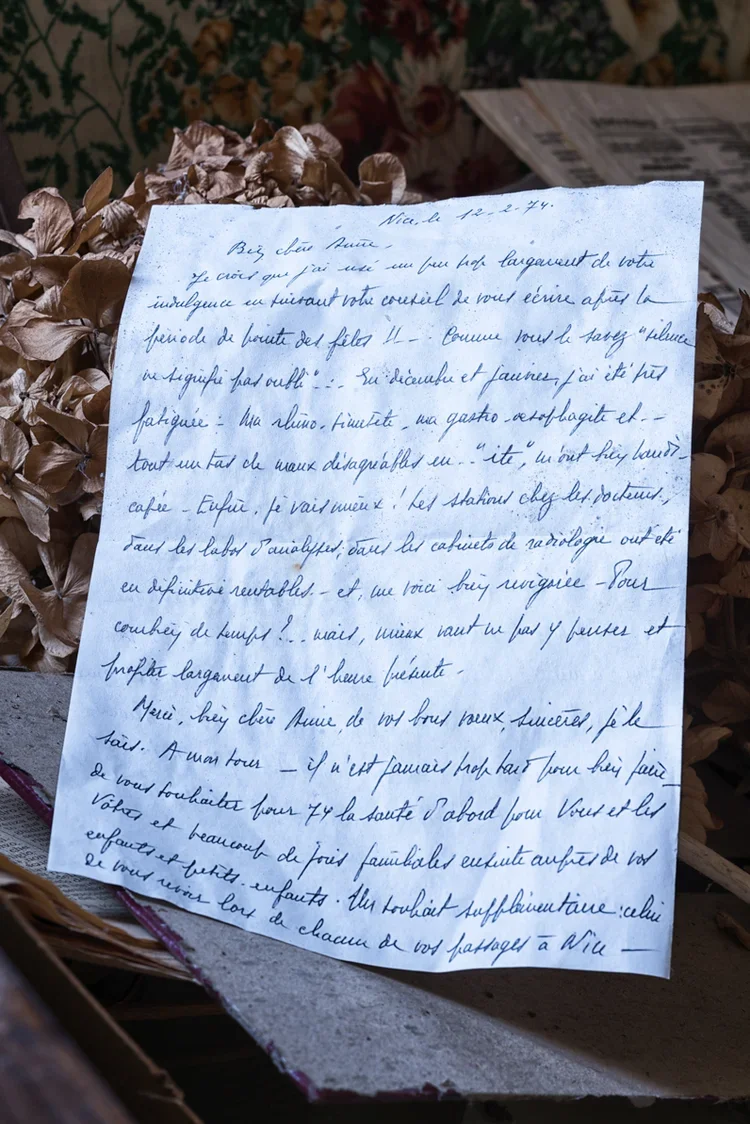 Nice, le 12-2-74.
Bien chère Anne,
Je crois que j'ai usé un peu trop largement de votre
indulgence en suivant votre conseil de vous écrire après la
période de pointe des fêtes !! - . Comme vous le savez "silence
ne signifie pas oubli" . : . En décembre et janvier, j'ai été très
fatiguée : Ma rhino-sinusite, ma gastro-oesophagite et . -
tout un tas de maux désagréables en .. "ite", m'ont bien handi-
capée - Enfin, je vais mieux ! Les stations chez les docteurs,
dans les labos d'analyses, dans les cabinets de radiologie ont été
en définitive rentables. - et, me voici bien revigorée - Pour
combien de temps ? .. mais, mieux vaut ne pas y penser et
profiter largement de l'heure présente -
Merci, bien chère Anne, de vos bons voeux, sincères, je le
sais. A mon tour — il n'est jamais trop tard pour bien faire -
de vous souhaiter pour 74 la santé d'abord pour Vous et les
Vôtres et beaucoup de joies familiales ensuite auprès de vos
enfants et petits-enfants. Un souhait supplémentaire : celui
de vous revoir lors de chacun de vos passages à Nice —